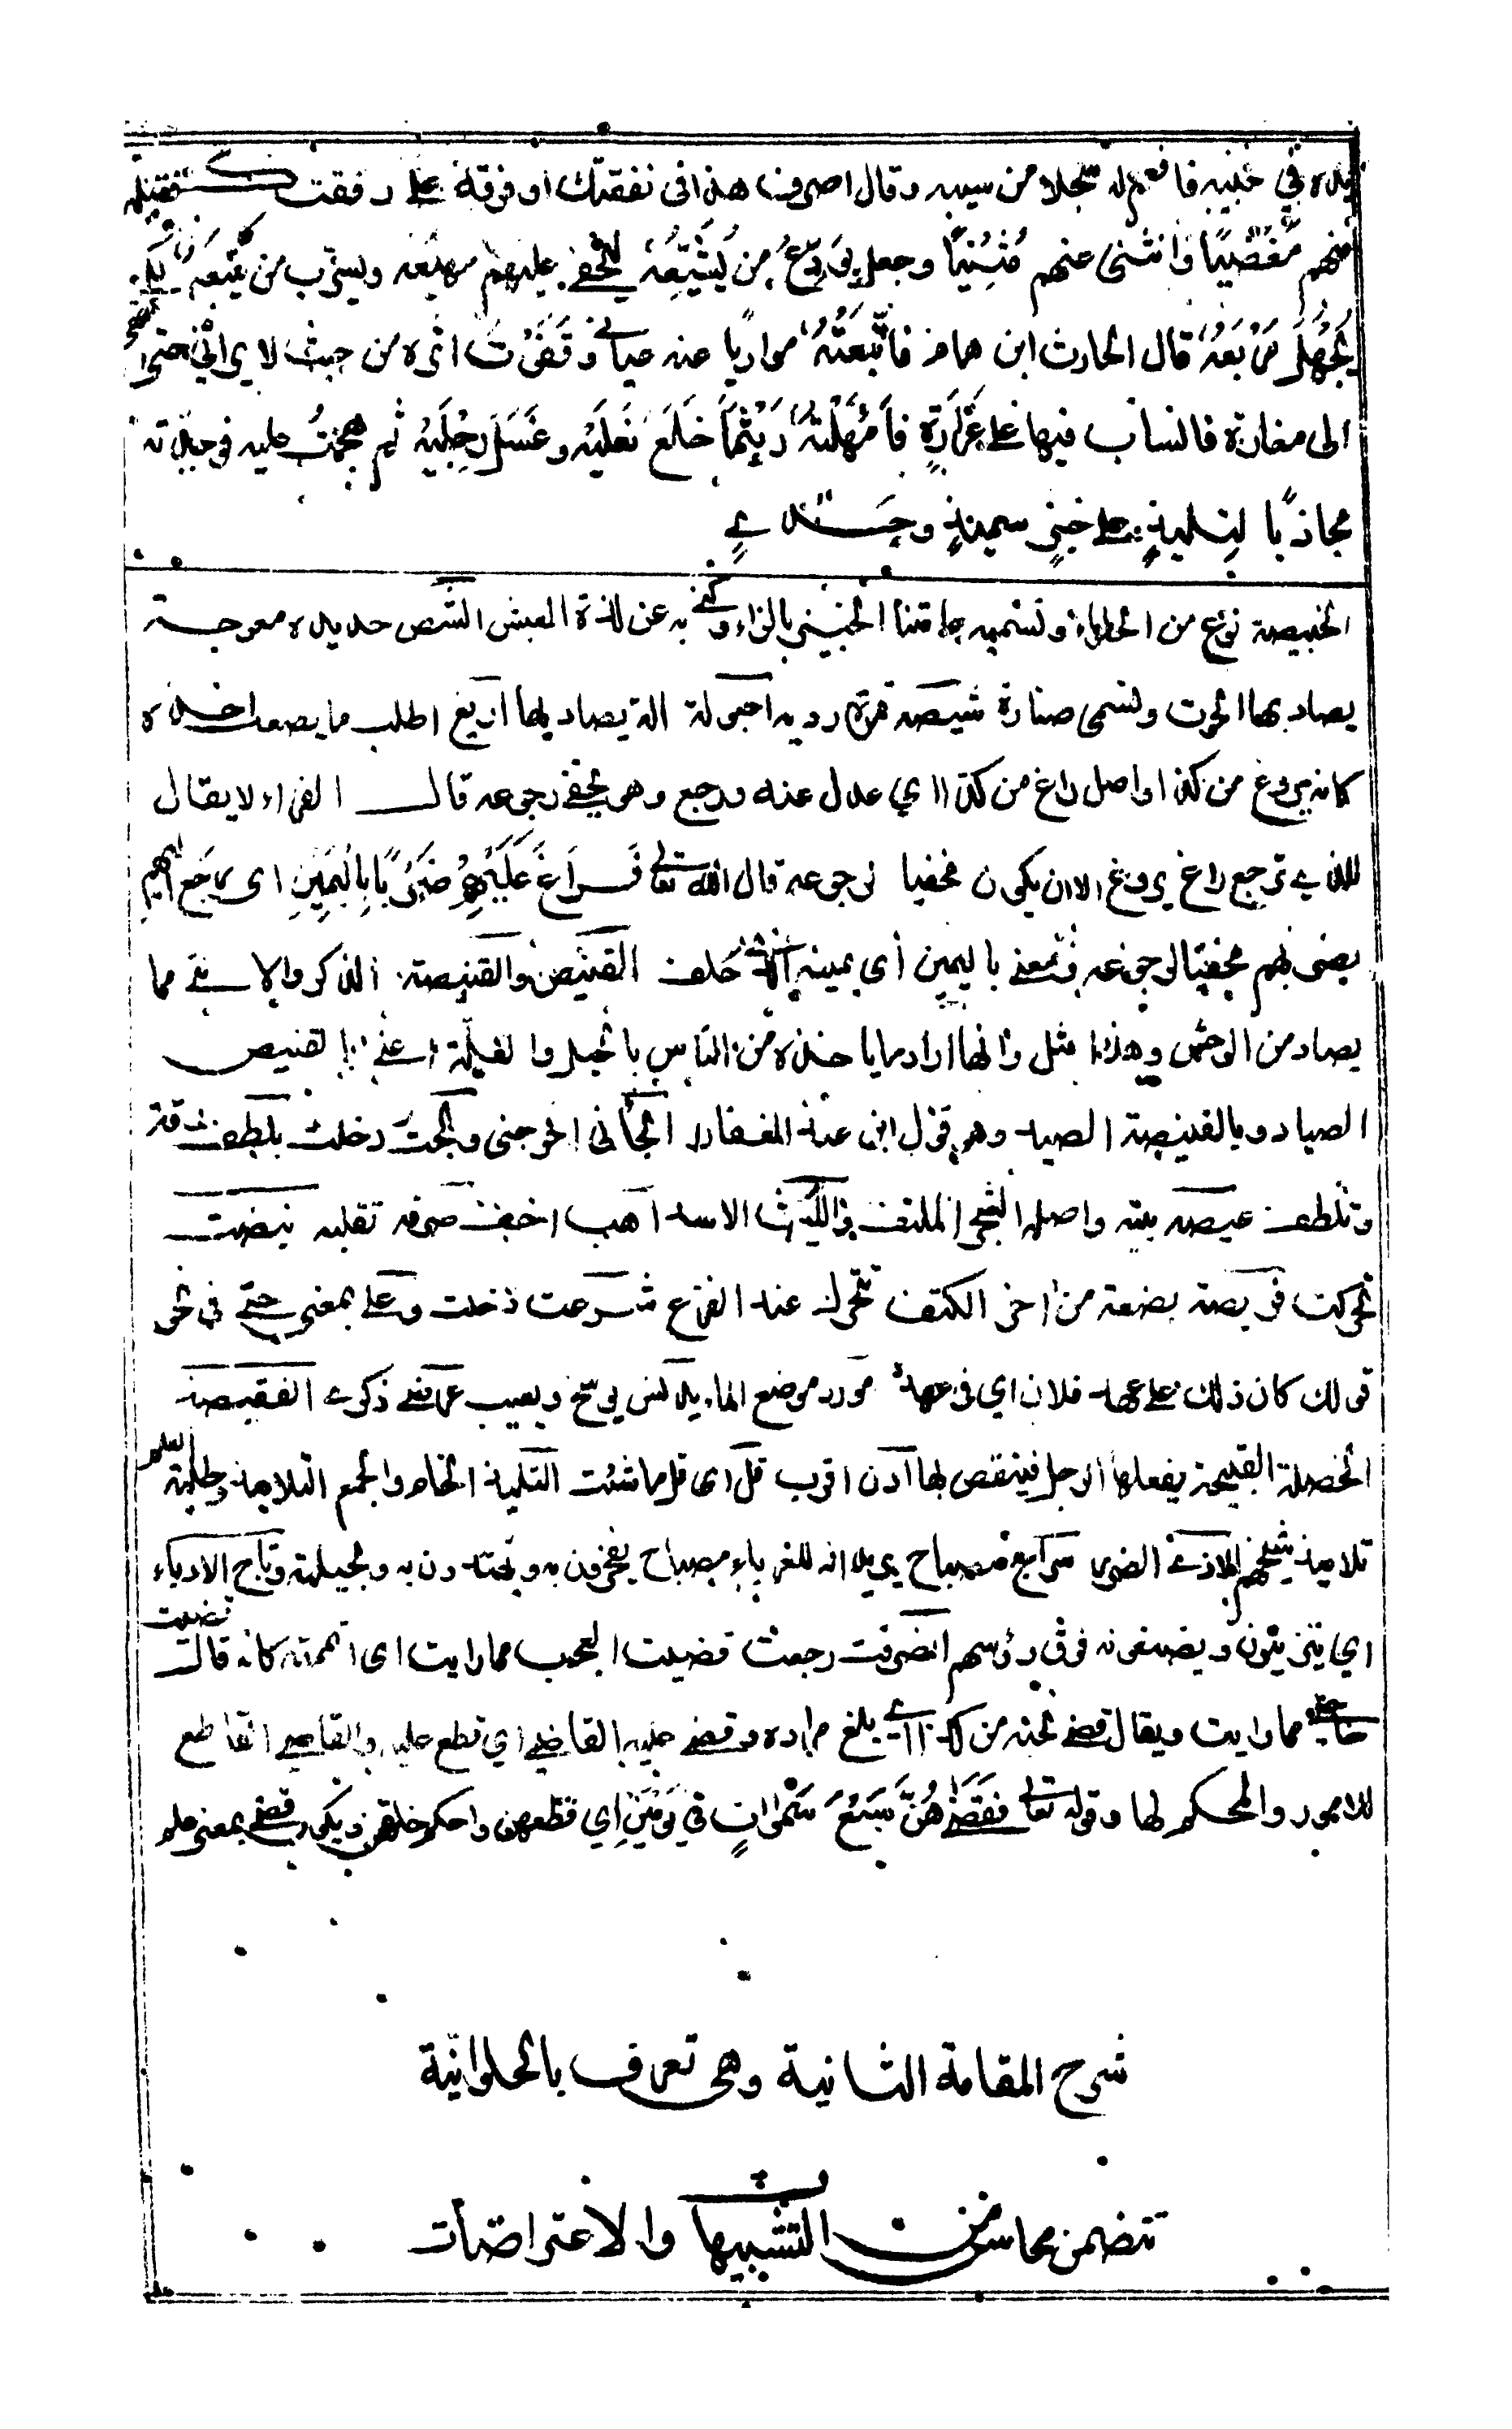 يده في جيبه فافعم له سجلا من سيبه وقال اصرف هذا في نفقتك او فرقه على رفقتك فقبله
منهم مُغْضِيًا وانثنى عنهم مُثْنِيًا وجعل يُوَدِّعُ مَن يُشَيِّعُه ليخفى عليهم مهيعه ويسرّب من يتبعه لكي
يُجْهَلَ مَرْبَعُه قال الحارث ابن همام فاتّبعتُه مواريًا عنه عياني وقَفَوْتُ اثره من حيث لا يراني حتى انتهى
الى مغارة فانساب فيها على غَرارَةٍ فأمْهَلْتُه رَيْثَما خَلَعَ نَعْلَيْه وغَسَلَ رِجْلَيْه ثم هجمتُ عليه فوجدته
محاذيًا لتلميذٍ على خبزٍ سميذٍ وجَدْيٍ
الخبيصة نوع من الحلواء وتسميه عامتنا الخبيز بالزاء وكنى به عن لذة العيش الشص حديدة معوجة
يصاد بها الحوت وتسمى صنارة شيصه تمرة ردية احبولة الة يصاد بها اريغ اطلب ما يصعب اخذه
كانه يروغ من كذا واصل راغ من كذا اي عدل عنه ورجع وهو يخفي رجوعه قال الفراء لا يقال
للذي رجع راغ يروغ الا ان يكون مخفيا لرجوعه قال الله تعالى فَراغَ عَلَيْهِمْ ضَرْبًا بِالْيَمِينِ اي رجع اليهم
يضربهم مخفيا لرجوعه ومعنى باليمين اي بيمينه حلف القنيص والقنيصة الذكر والانثى مما
يصاد من الوحش وهذا مثل وانما اراد ما ياخذه من الناس بالحيل والغيلة اعنى بالقنيص
الصياد وبالقنيصة الصيد وهو قول ابن عبد الغفار الجأني احوجني ولجت دخلت بلطف برقة
وتلطف عيصه بيته واصله الشجر الملتف والليث الاسد اهب اخف صرفه تقلبه نبضت
تحركت فريصة بضعة من اخر الكتف تتحرك عند الفزع شرعت دخلت وعلى بمعنى حتى في نحو
قولك كان ذلك على عهد فلان اي في عهده مورد موضع الماء يدنس يوسخ ويعيب عرضي ذكري النقيصة
الخصلة القبيحة يفعلها الرجل فينقص لها ادن اقرب قل اي قل ما شئت التلميذ الخادم والجمع التلاميذ وطلبة العلم
تلاميذ شيخهم الاذكى الضوء سراج مصباح يريد انه للغرباء مصباح يفخرون به ويهتدون به ولجميله وتاج الادباء
اي يتزينون ويضعونه فوق رؤسهم انصرفت رجعت قضيت العجب مما رايت اى اتممته كانه قال قضيت
حاجتي مما رايت ويقال قضى نحبه من كذا اي بلغ مراده وقضى عليه القاضي اي قطع عليه والقاضي القاطع
للامور والمحكم لها وقوله تعالى فقضاهُنَّ سَبْعَ سَمٰواتٍ في يَوْمَيْنِ اي قطعهن واحكم خلقهن ويكون قضى بمعنى علم
شرح المقامة الثانية وهي تعرف بالحلوانية
تتضمن محاسن من التشبيهات والاعتراضات